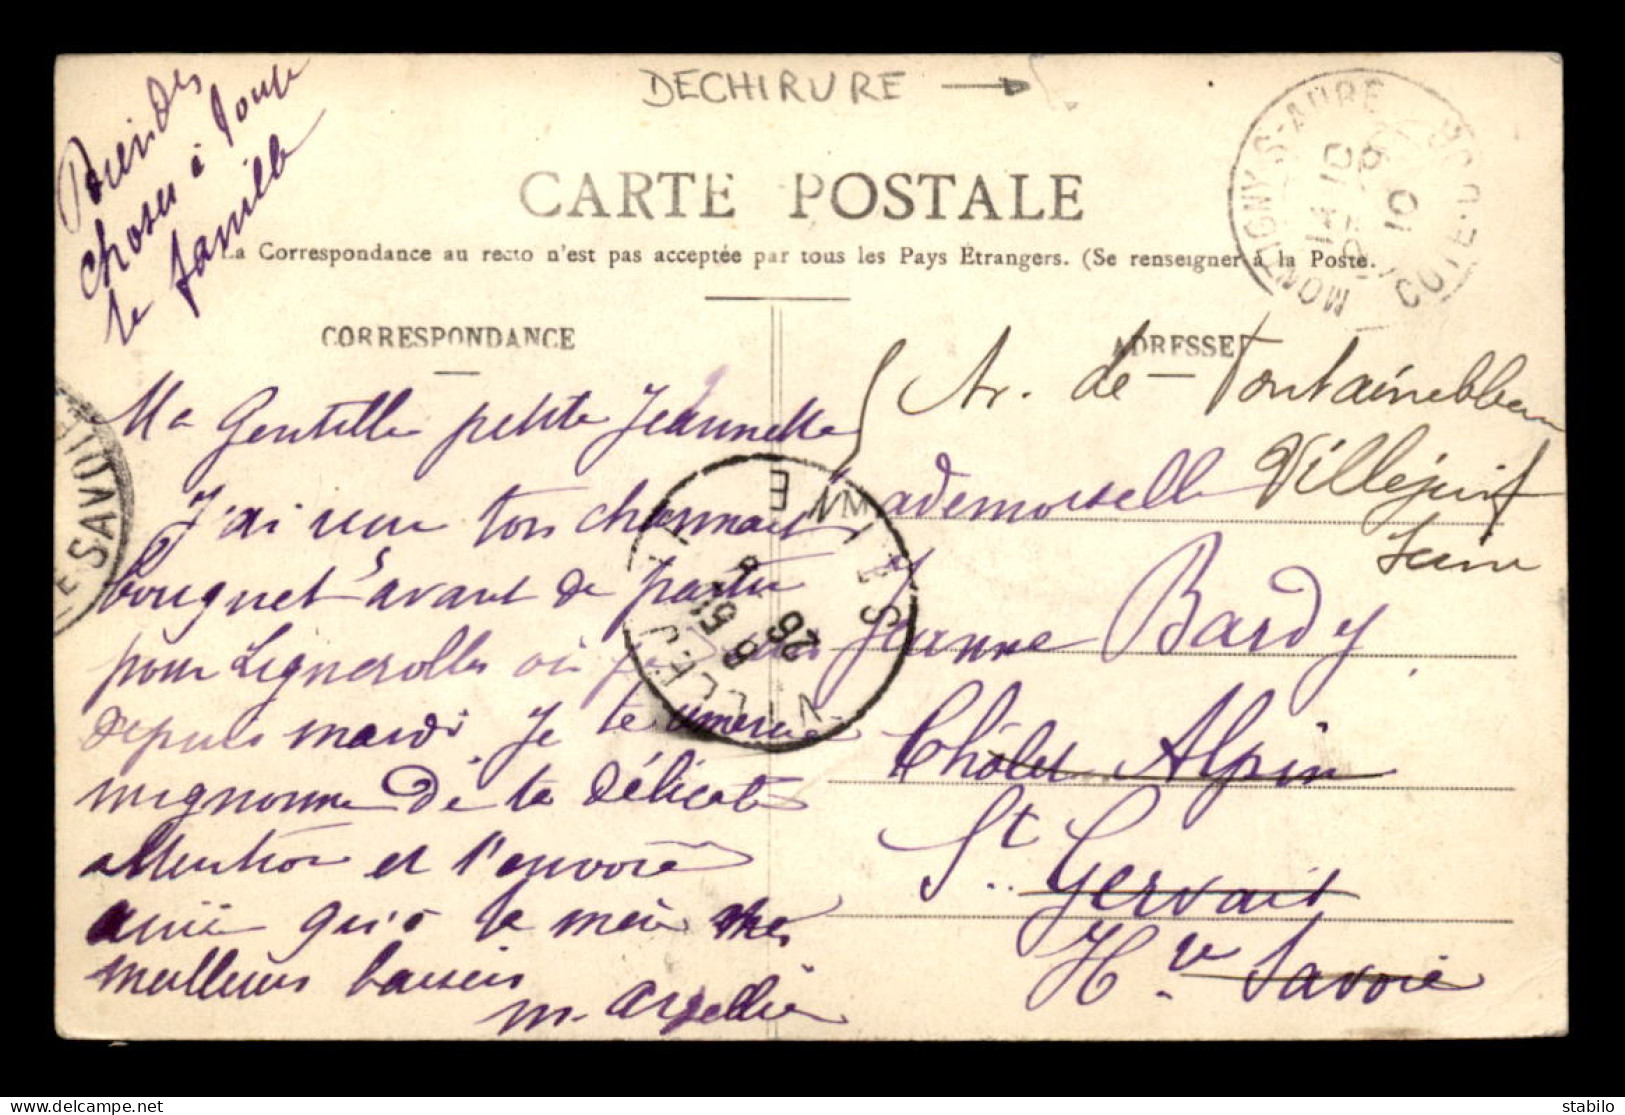 DECHIRURE →
Bien des
choses à toute
la famille
CARTE POSTALE
La Correspondance au recto n'est pas acceptée par tous les Pays Étrangers. (Se renseigner à la Poste.
MONTIGNY-S-AUBE
14 10
10
COTE-D'OR
CORRESPONDANCE
ADRESSE
Ma Gentille petite Jeannette
J'ai reçu ton charmant
bouquet avant de partir
pour Lignerolles où je suis
depuis mardi. Je te remercie
mignonne de ta délicate
attention et t'envoie
ainsi qu'à ta mère mes
meilleurs baisers
Av. de Fontainebleau
Villejuif
Seine
Mademoiselle
Jeanne Bardy
Châlet Alpin
St Gervais
Hte Savoie
VILLEJUIF
SEINE
26
8
E SAVOIE
stabilo